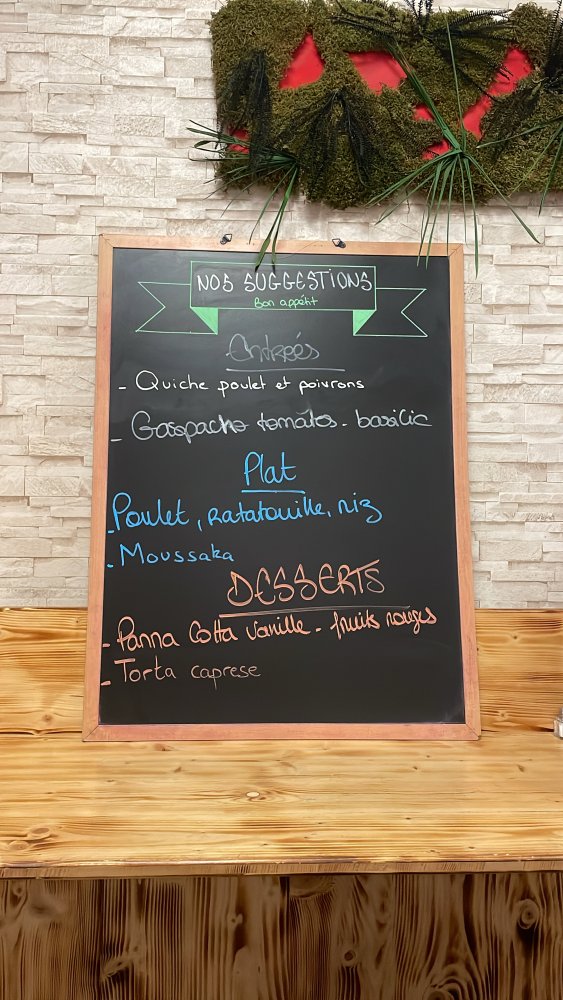 NOS SUGGESTIONS
Bon appétit
Entrées
- Quiche poulet et poivrons
- Gaspacho tomates - basilic
Plat
- Poulet, Ratatouille, riz
- Moussaka
DESSERTS
- Panna Cotta Vanille - fruits rouges
- Torta caprese